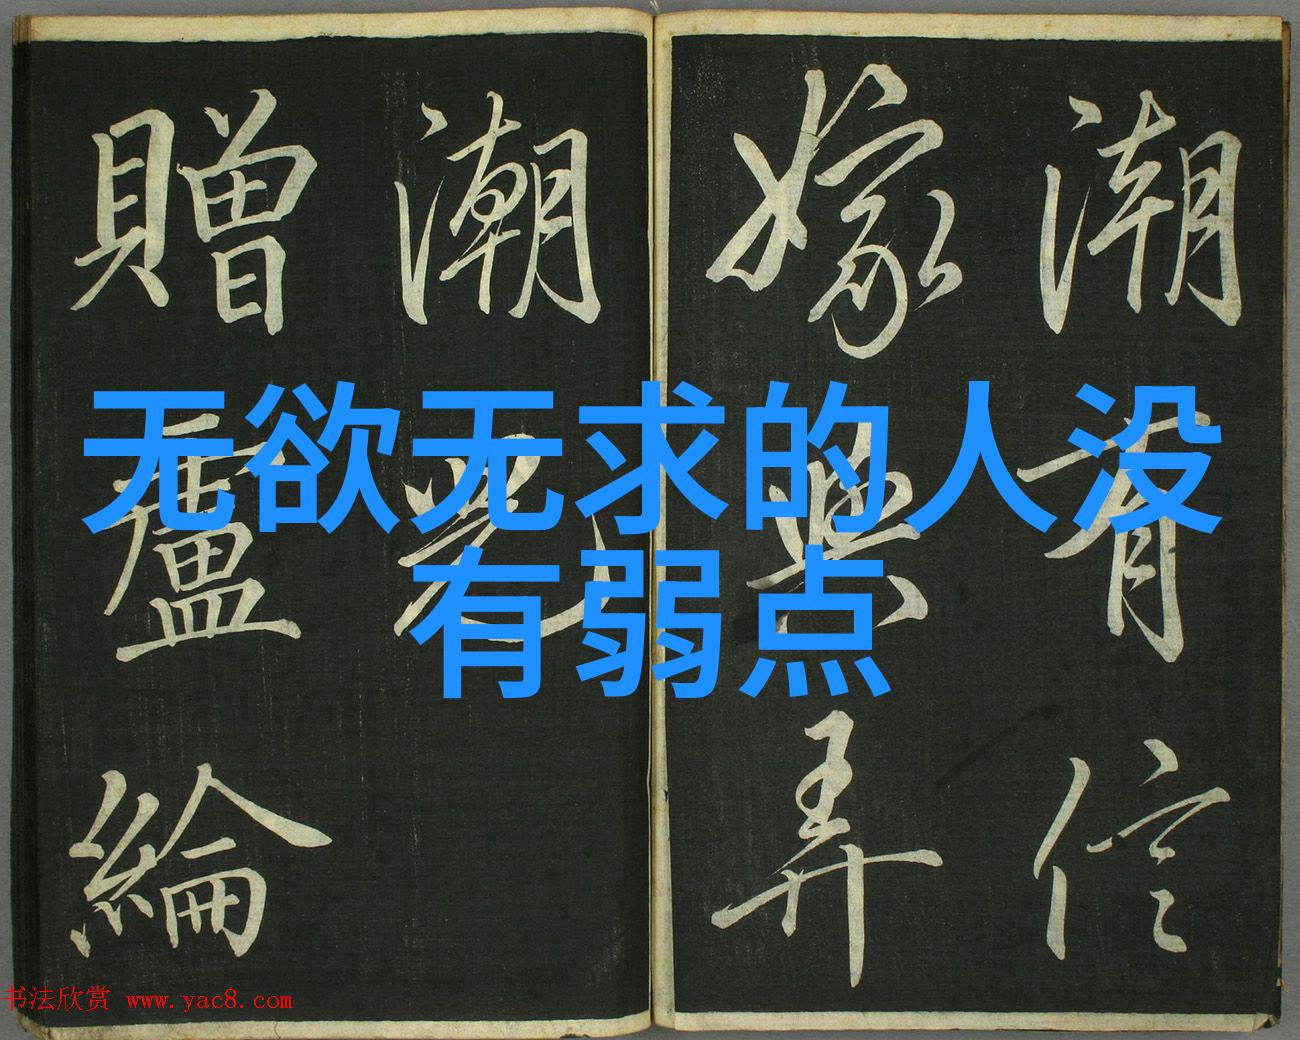 无欲无求的人没
有弱点
潮有信
嫁與弄
潮兒
贈盧綸
书法欣赏 www.yac8.com